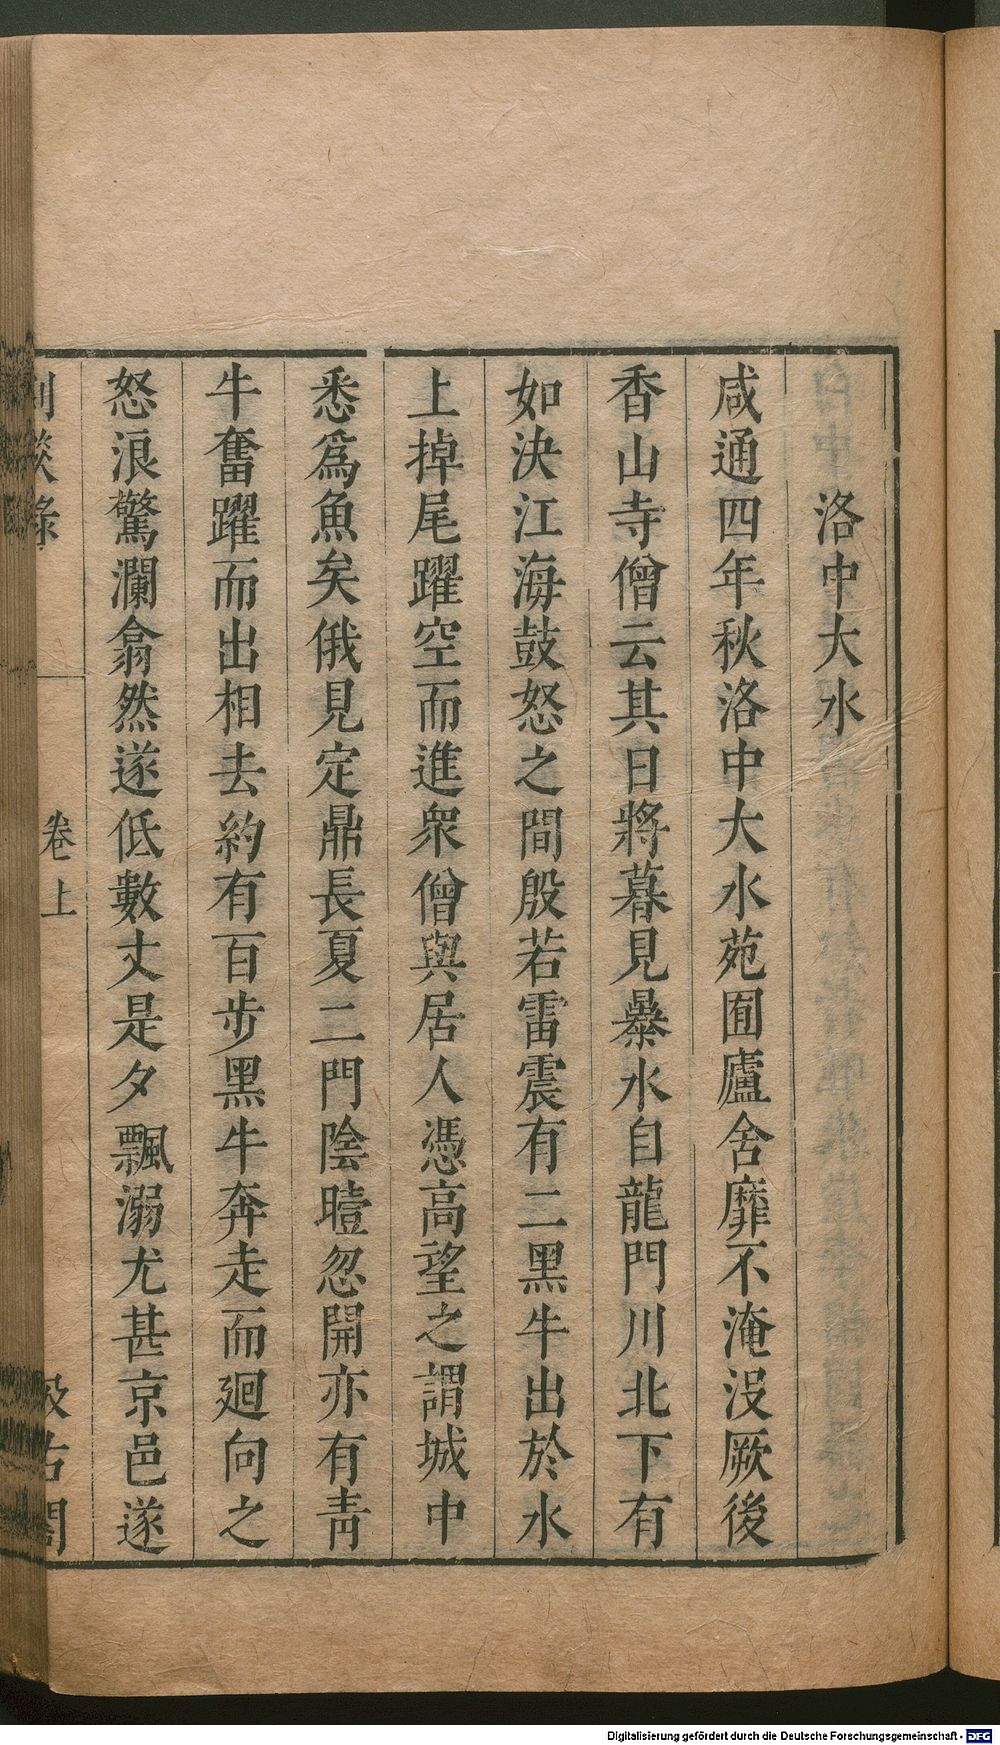 洛中大水
咸通四年秋洛中大水苑囿廬舍靡不淹沒厥後
香山寺僧云其日將暮見暴水自龍門川北下有
如決江海鼓怒之間殷若雷震有二黑牛出於水
上掉尾躍空而進衆僧與居人憑高望之謂城中
悉爲魚矣俄見定鼎長夏二門陰曀忽開亦有青
牛奮躍而出相去約有百步黑牛奔走而廻向之
怒浪驚瀾翕然遂低數丈是夕飄溺尤甚京邑遂
劇談錄
卷上
汲古閣
Digitalisierung gefördert durch die Deutsche Forschungsgemeinschaft - DFG